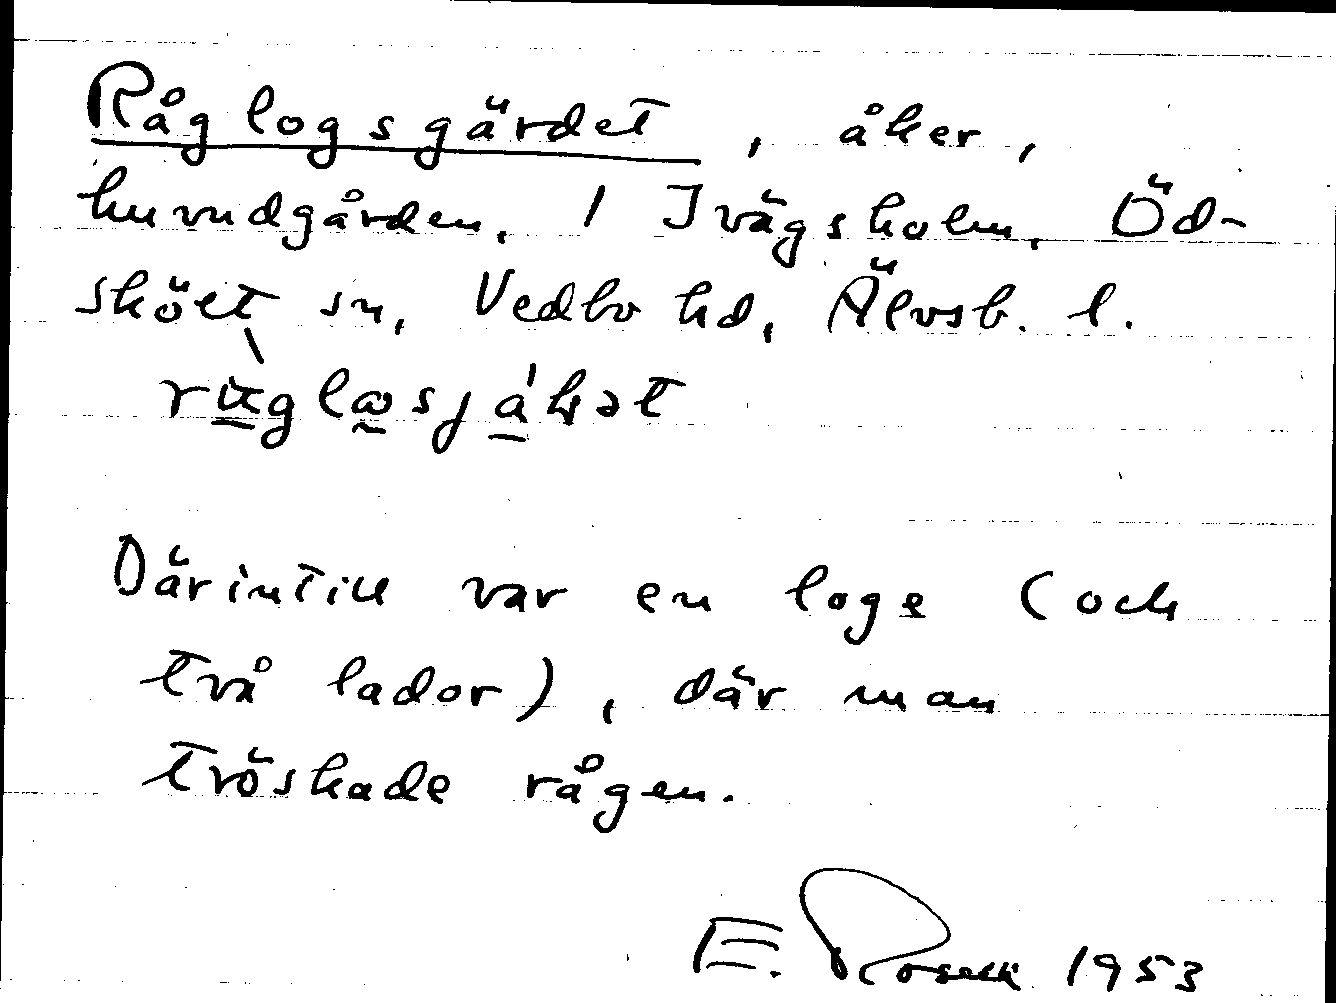 Råglogsgärdet, åker,
huvudgården, 1 Ivägsholm, Öd-
sköelt sn, Vedbo hd, Älvsb. l.
Därintill var en loge (och
två lador), där man
tröskade rågen.
E. Rosell 1953